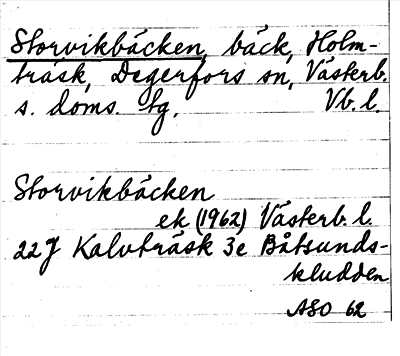 Storvikbäcken, bäck, Holm-
träsk, Degerfors sn, Västerb.
s. doms. tg. Vb. l.
Storvikbäcken
ek (1962) Västerb. l.
22 J Kalvträsk 3e Båtsunds-
kludden
ASO 62